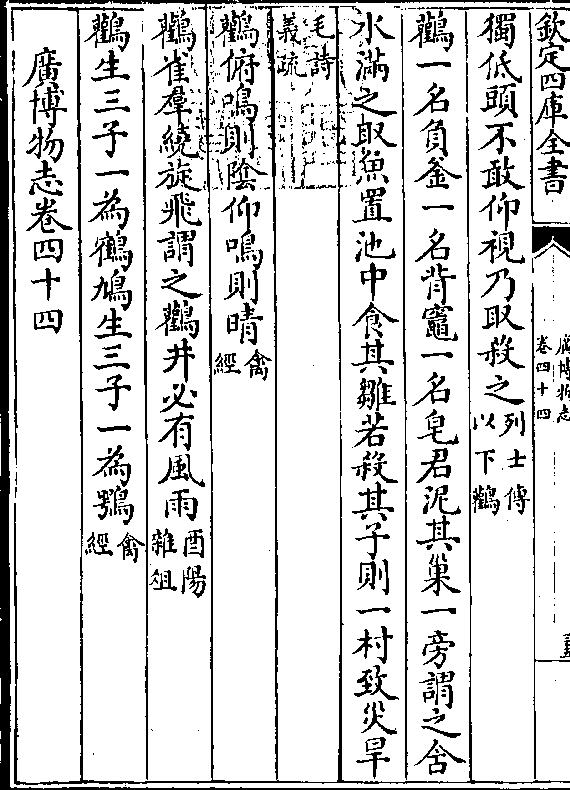 欽定四庫全書
廣博物志
卷四十四
獨低頭不敢仰視乃取殺之列士傳以下鸛
鸛一名負釜一名背竈一名皂君泥其巢一旁謂之舍
水滿之取魚置池中食其雛若殺其子則一村致災旱
毛詩義疏
鸛俯鳴則隂仰鳴則晴禽經
鸛雀羣繞旋飛謂之鸛井必有風雨酉陽雜俎
鸛生三子一為鶴鳩生三子一為鶚禽經
廣博物志卷四十四